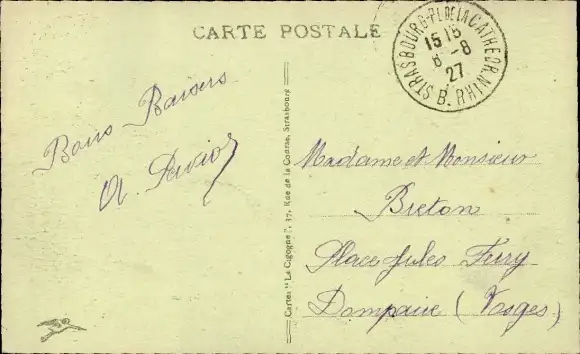 CARTE POSTALE
STRASBOURG-PL. DE LA CATHEDR.
15 15
8 -8
27
B. RHIN
Bons Baisers
Cartes "La Cigogne", 37, Rue de la Course, Strasbourg
Madame et Monsieur
Breton
Place Jules Ferry
Dompaire (Vosges)